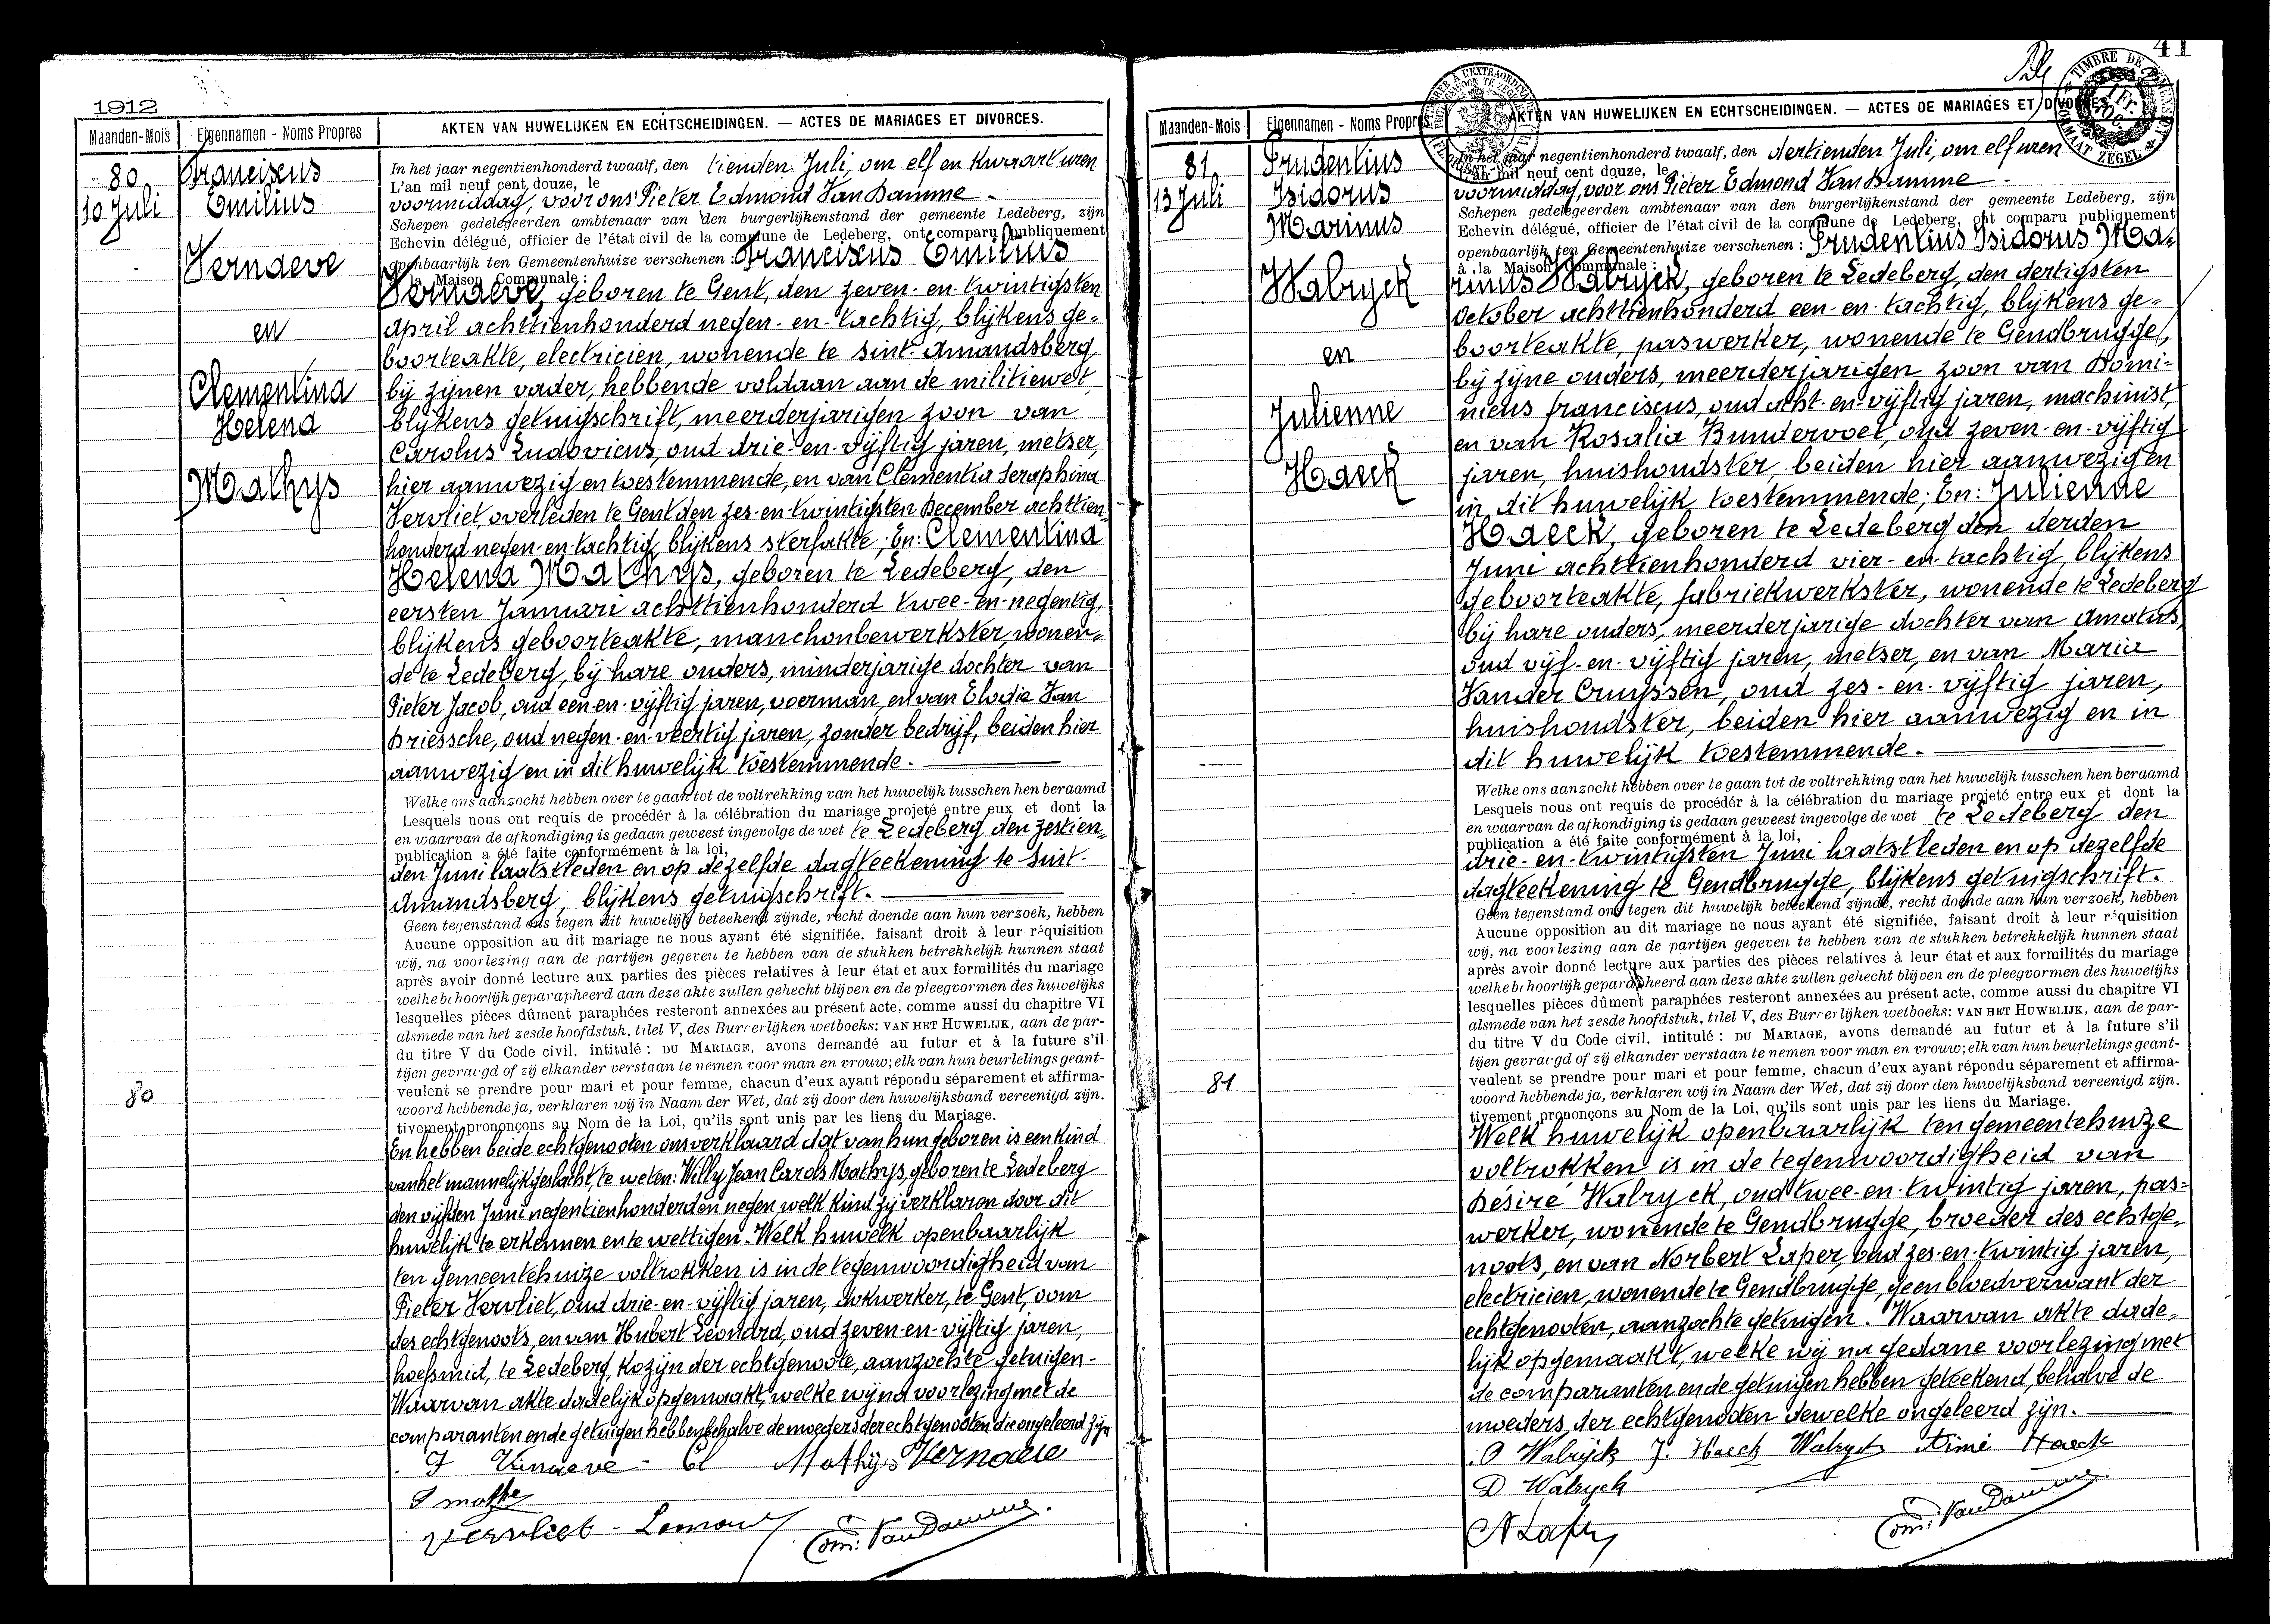 1912
Maanden-Mois
Eigennamen - Noms Propres
AKTEN VAN HUWELIJKEN EN ECHTSCHEIDINGEN. — ACTES DE MARIAGES ET DIVORCES.
80
10 Juli
Franciscus
Emilius
Vernaeve
en
Clementina
Helena
Mathys
80
In het jaar negentienhonderd twaalf, den tienden Juli, om elf en kwaart uren
L'an mil neuf cent douze, le
voormiddag, voor ons Pieter Edmond Van Damme -
Schepen gedelegeerden ambtenaar van den burgerlijkenstand der gemeente Ledeberg, zijn
Echevin délégué, officier de l'état civil de la commune de Ledeberg, ont comparu publiquement
openbaarlijk ten Gemeentenhuize verschenen : Franciscus Emilius
à la Maison Communale :
Vernaeve, geboren te Gent, den zeven-en-twintigsten
april achttienhonderd negen-en-tachtig, blijkens ge-
boorteakte, electricien, wonende te Sint-Amandsberg
bij zijnen vader, hebbende voldaan aan de militiewet,
blijkens getuigschrift, meerderjarigen zoon van
Carolus Ludovicus, oud drie-en-vijftig jaren, metser,
hier aanwezig en toestemmende, en van Clementia Seraphina
Vervliet, overleden te Gent den zes-en-twintigsten December achttien-
honderd negen-en-tachtig, blijkens sterfakte; En: Clementina
Helena Mathys, geboren te Ledeberg, den
eersten Januari achttienhonderd twee-en-negentig,
blijkens geboorteakte, manchonbewerkster, wonen-
de te Ledeberg, bij hare ouders, minderjarige dochter van
Pieter Jacob, oud een-en-vijftig jaren, voerman, en van Elodie Van
Driessche, oud negen-en-veertig jaren, zonder bedrijf, beiden hier
aanwezig en in dit huwelijk toestemmende.
Welke ons aanzocht hebben over te gaan tot de voltrekking van het huwelijk tusschen hen beraamd
Lesquels nous ont requis de procéder à la célébration du mariage projeté entre eux et dont la
en waarvan de afkondiging is gedaan geweest ingevolge de wet te Ledeberg den zestien-
publication a été faite conformément à la loi,
den Juni laatstleden en op dezelfde dagteekening te Sint-
Amandsberg, blijkens getuigschrift.
Geen tegenstand ons tegen dit huwelijk beteekend zijnde, recht doende aan hun verzoek, hebben
Aucune opposition au dit mariage ne nous ayant été signifiée, faisant droit à leur réquisition
wij, na voorlezing aan de partijen gegeven te hebben van de stukken betrekkelijk hunnen staat
après avoir donné lecture aux parties des pièces relatives à leur état et aux formilités du mariage
welke behoorlijk geparapheerd aan deze akte zullen gehecht blijven en de pleegvormen des huwelijks
lesquelles pièces dûment paraphées resteront annexées au présent acte, comme aussi du chapitre VI
alsmede van het zesde hoofdstuk, titel V, des Burgerlijken wetboeks: VAN HET HUWELIJK, aan de par-
du titre V du Code civil, intitulé : DU MARIAGE, avons demandé au futur et à la future s'il
tijen gevraagd of zij elkander verstaan te nemen voor man en vrouw; elk van hun beurlelings geant-
veulent se prendre pour mari et pour femme, chacun d'eux ayant répondu séparement et affirma-
woord hebbende ja, verklaren wij in Naam der Wet, dat zij door den huwelijksband vereenigd zijn.
tivement prononçons au Nom de la Loi, qu'ils sont unis par les liens du Mariage.
En hebben beide echtgenooten ons verklaard dat van hun geboren is een kind
van het mannelijk geslacht, te weten: Willy Jean Carols Mathys, geboren te Ledeberg
den vijfden Juni negentienhonderd en negen, welk kind zij verklaren door dit
huwelijk te erkennen en te wettigen. Welk huwelk openbaarlijk
ten gemeentehuize voltrokken is in de tegenwoordigheid van
Pieter Vervliet, oud drie-en-vijftig jaren, dokwerker, te Gent, oom
des echtgenoots, en van Hubert Leonard, oud zeven-en-vijftig jaren,
hoefsmid, te Ledeberg, kozijn der echtgenoote, aanzochte getuigen-
Waarvan akte dadelijk opgemaakt, welke wij na voorlezing met de
comparanten en de getuigen hebben behalve de moeders der echtgenooten die ongeleerd zijn
F Vernaeve - Cl Mathys Vernaeve
Vervliet -
Edm. Van Damme.
41
Maanden-Mois
Eigennamen - Noms Propres
AKTEN VAN HUWELIJKEN EN ECHTSCHEIDINGEN. — ACTES DE MARIAGES ET DIVORCES.
81
13 Juli
Prudentius
Isidorus
Marinus
Walryck
en
Julienne
Haeck
81
In het jaar negentienhonderd twaalf, den dertienden Juli, om elf uren
L'an mil neuf cent douze, le
voormiddag, voor ons Pieter Edmond Van Damme -
Schepen gedelegeerden ambtenaar van den burgerlijkenstand der gemeente Ledeberg, zijn
Echevin délégué, officier de l'état civil de la commune de Ledeberg, ont comparu publiquement
openbaarlijk ten Gemeentenhuize verschenen : Prudentius Isidorus Ma-
à la Maison Communale :
rinus Walryck, geboren te Ledeberg, den dertigsten
October achttienhonderd een-en-tachtig, blijkens ge-
boorteakte, paswerker, wonende te Gendbrugge,
bij zijne ouders, meerderjarigen zoon van Domi-
nicus franciscus, oud acht-en-vijftig jaren, machinist,
en van Rosalia Bundervoet, oud zeven-en-vijftig
jaren, huishoudster, beiden hier aanwezig en
in dit huwelijk toestemmende; En: Julienne
Haeck, geboren te Ledeberg den derden
Juni achttienhonderd vier-en-tachtig, blijkens
geboorteakte, fabriekwerkster, wonende te Ledeberg
bij hare ouders, meerderjarige dochter van Amatus,
oud vijf-en-vijftig jaren, metser, en van Maria
Vander Cruyssen, oud zes-en-vijftig jaren,
huishoudster, beiden hier aanwezig en in
dit huwelijk toestemmende.
Welke ons aanzocht hebben over te gaan tot de voltrekking van het huwelijk tusschen hen beraamd
Lesquels nous ont requis de procéder à la célébration du mariage projeté entre eux et dont la
en waarvan de afkondiging is gedaan geweest ingevolge de wet te Ledeberg den
publication a été faite conformément à la loi,
drie-en-twintigsten Juni laatstleden en op dezelfde
dagteekening te Gendbrugge, blijkens getuigschrift.
Geen tegenstand ons tegen dit huwelijk beteekend zijnde, recht doende aan hun verzoek, hebben
Aucune opposition au dit mariage ne nous ayant été signifiée, faisant droit à leur réquisition
wij, na voorlezing aan de partijen gegeven te hebben van de stukken betrekkelijk hunnen staat
après avoir donné lecture aux parties des pièces relatives à leur état et aux formilités du mariage
welke behoorlijk geparapheerd aan deze akte zullen gehecht blijven en de pleegvormen des huwelijks
lesquelles pièces dûment paraphées resteront annexées au présent acte, comme aussi du chapitre VI
alsmede van het zesde hoofdstuk, titel V, des Burgerlijken wetboeks: VAN HET HUWELIJK, aan de par-
du titre V du Code civil, intitulé : DU MARIAGE, avons demandé au futur et à la future s'il
tijen gevraagd of zij elkander verstaan te nemen voor man en vrouw; elk van hun beurlelings geant-
veulent se prendre pour mari et pour femme, chacun d'eux ayant répondu séparement et affirma-
woord hebbende ja, verklaren wij in Naam der Wet, dat zij door den huwelijksband vereenigd zijn.
tivement prononçons au Nom de la Loi, qu'ils sont unis par les liens du Mariage.
Welk huwelijk openbaarlijk ten gemeentehuize
voltrokken is in de tegenwoordigheid van
Désiré Walryck, oud twee-en-twintig jaren, pas-
werker, wonende te Gendbrugge, broeder des echtge-
noots, en van Norbert Laper, oud zes-en-twintig jaren,
electricien, wonende te Gendbrugge, geen bloedverwant der
echtgenooten, aanzochte getuigen. Waarvan akte dade-
lijk opgemaakt, welke wij na gedane voorlezing met
de comparanten en de getuigen hebben geteekend, behalve de
moeders der echtgenooten dewelke ongeleerd zijn.
P Walryck J. Haeck Walryck Aimé Haeck
D Walryck
Edm. Van Damme